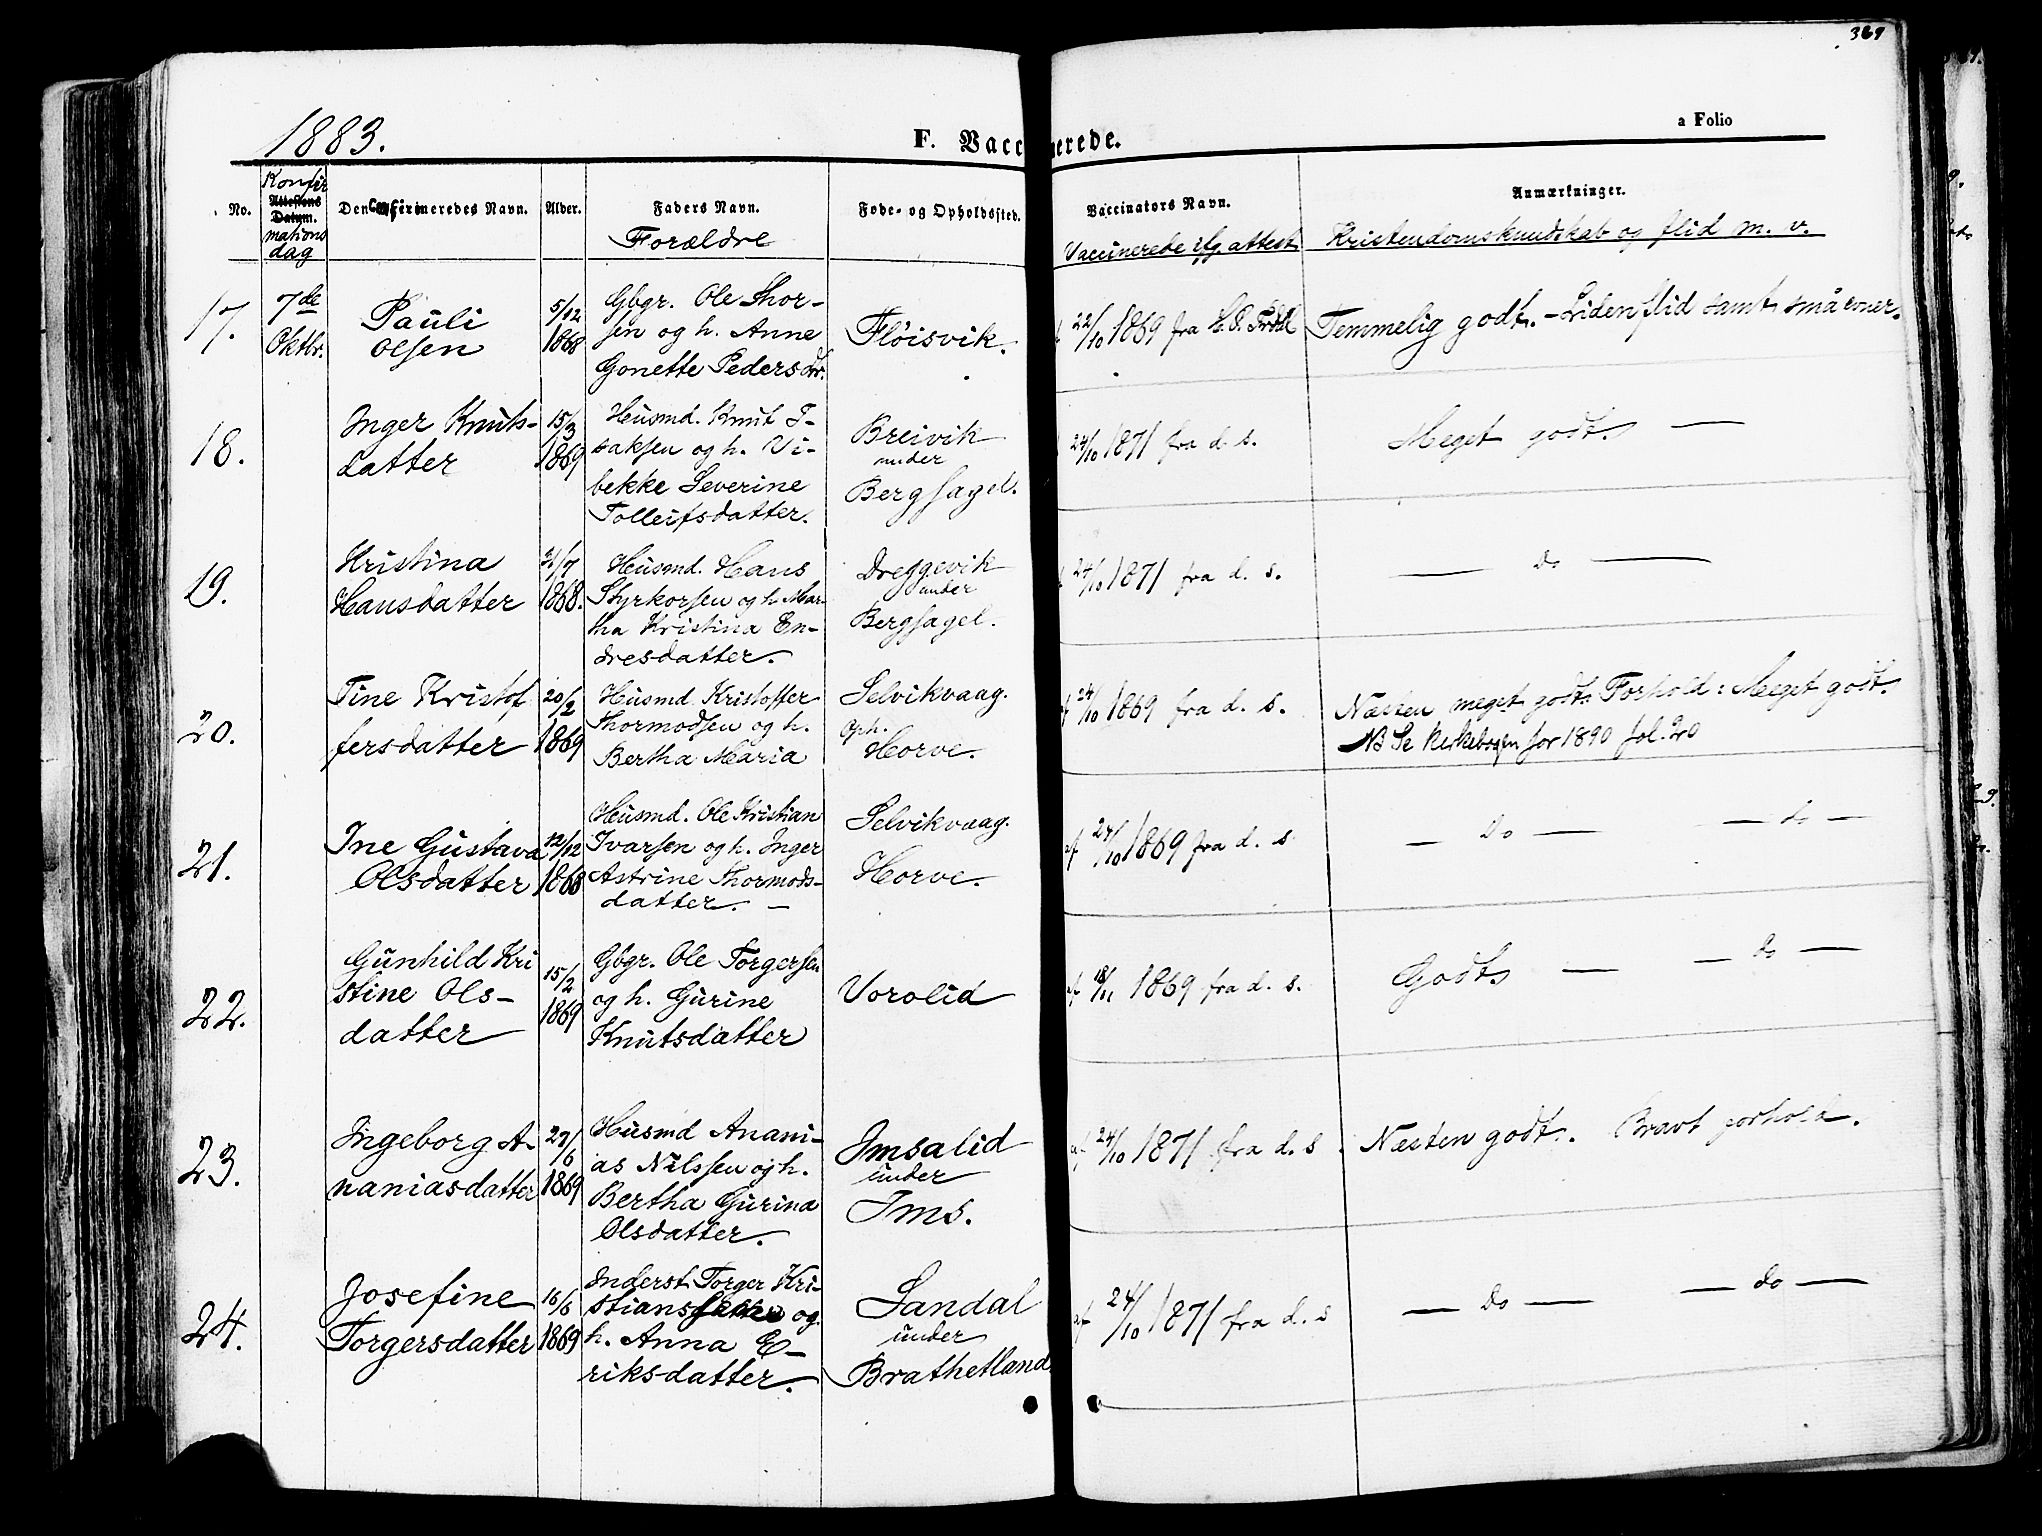 369
1883.
F. Vaccinerede.
a Folio
No.
Konfir
Attestens
Datum.
mations
dag
Den Confirmeredes Navn.
Alder.
Faders Navn.
Forældre
Føde- og Opholdssted.
Vaccinators Navn.
Vaccinerede ifg. attest
Anmærkninger.
Kristendomskundskab og flid m. v.
17.
7de
Oktbr.
Pauli
Olsen
5/12
1868
Gbgr. Ole Thor-
sen og h. Anne
Gonette Pedersdtr.
Fløisvik.
22/10 1869 fra
Temmelig godt. - Liden flid samt små evner.
18.
Inger Knuts-
datter
15/3
1869
Husmd. Knut I-
saksen og h. Vi-
bekke Severine
Tolleifsdatter.
Breivik
under
Bergsagel.
24/10 1871 fra d. s.
Meget godt. —
19.
Kristina
Hansdatter
21/7
1868.
Husmd. Hans
Styrkorsen og h. Mar-
tha Kristina En-
dresdatter.
Dreggevik
under
Bergsagel.
24/10 1871 fra d. s.
— Do —
20.
Tine Kristof
fersdatter
20/2
1869
Husmd. Kristoffer
Thormodsen og h.
Bertha Maria
Selvikvaag.
Oph.
Horve.
af 24/10 1869 fra d. s.
Næsten meget godt. Forhold: Meget godt.
NB Se Kirkebogen for 1890 fol. 20
21.
Ine Gustava
Olsdatter
12/12
1868
Husmd. Ole Kristian
Ivarsen og h. Inger
Astrine Thormods-
datter. —
Selvikvaag.
Horve.
af 24/10 1869 fra d. s.
— Do — — do —
22.
Gunhild Kri
stine Ols-
datter
15/2
1869
Gbgr. Ole Torgersen
og h. Gurine
Knutsdatter
Vorolid
af 18/11 1869 fra d. s.
Godt. — — do —
23.
Ingeborg A-
naniasdatter
27/6
1869
Husmd Anani-
as Nilssen og h.
Bertha Gurina
Olsdatter.
Imsalid
under
Ims.
af 24/10 1871 fra d. s.
Næsten godt. Bravt forhold.
24.
Josefine
Torgersdatter
16/6
1869
Inderst Torger Kri-
stians og
h. Anna E-
riksdatter.
Sandal
under
Brathetland
af 24/10 1871 fra d. s
— Do — — do —